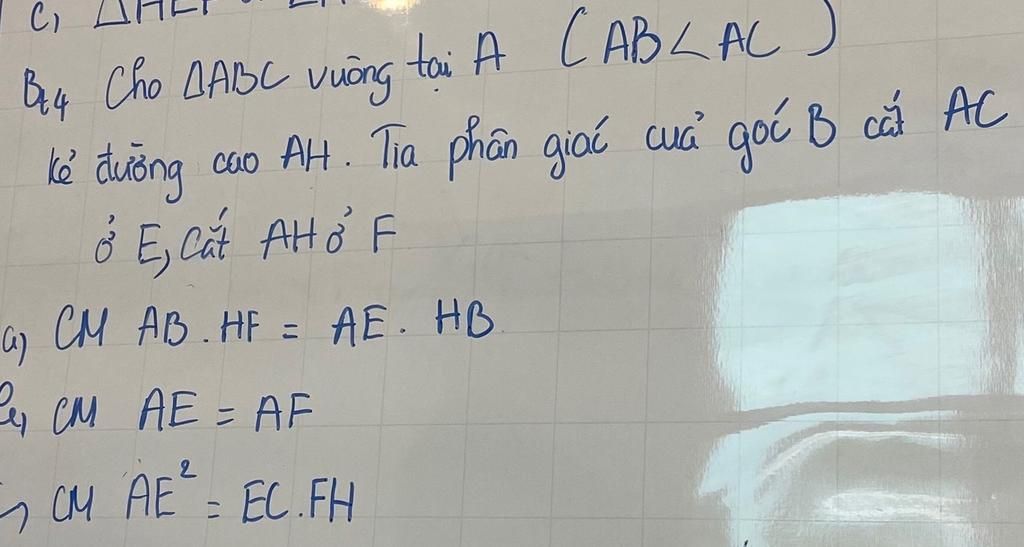 C, ΔHEF
Bt4 Cho ΔABC vuông tại A (AB < AC)
kẻ đường cao AH. Tia phân giác của góc B cắt AC
ở E, cắt AH ở F
a) CM AB . HF = AE . HB
b, CM AE = AF
CM AE² = EC . FH